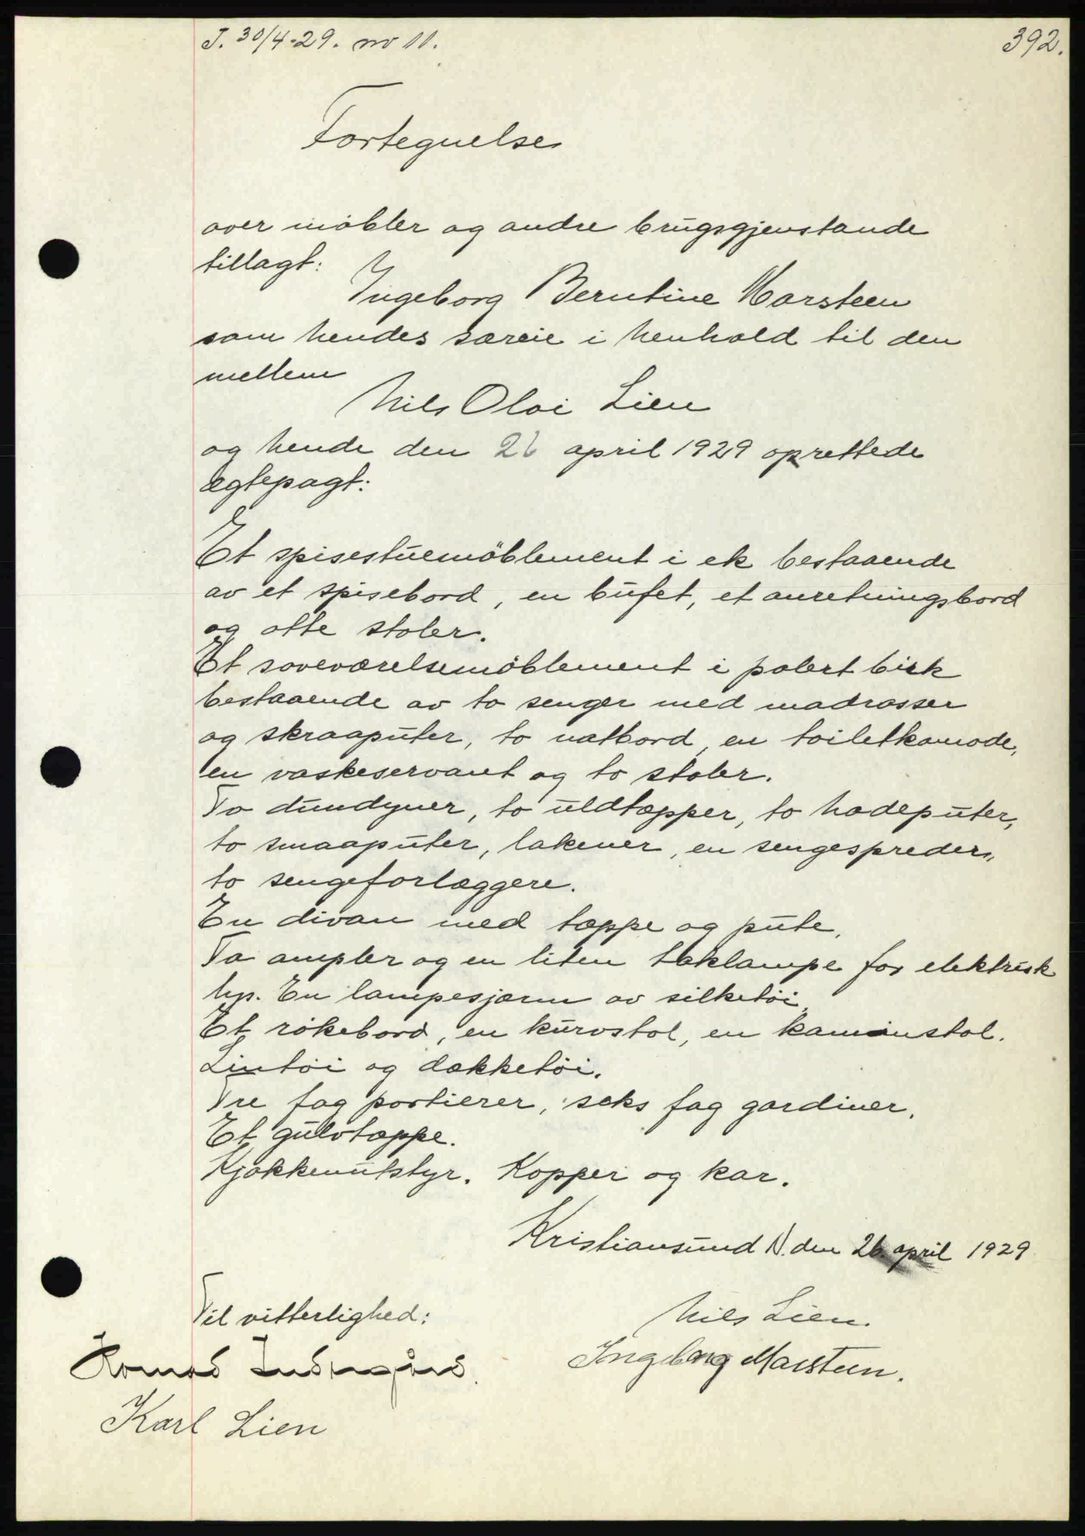 T. 30/4-29. no 11.
392.
Fortegnelse
over møbler og andre brugsgjenstande
tillagt:
Ingeborg Berntine Marsteen
som hendes særeie i henhold til den
mellem
Nils Olai Lien
og hende den 26 april 1929 oprettede
ægtepagt:
Et spisestuemöblement i ek bestaaende
av et spisebord, en bufet, et anretningsbord
og otte stoler.
Et soveværelsemöblement i polert birk
bestaaende av to senger med madrasser
og skraaputer, to natbord, en toiletkomode,
en vaskeservant og to stoler.
To dundyner, to uldtæpper, to hodeputer,
to smaaputer, lakener, en sengespreder,
to sengeforlæggere.
En divan med tæppe og pute.
To ampler og en liten taklampe for elektrisk
lys. En lampesjærm av silketöi.
Et rökebord, en kurvstol, en kaminstol.
Lintöi og dækketöi.
Tre fag portierer, seks fag gardiner.
Et gulvtæppe.
Kjøkkenutstyr. Kopper og kar.
Kristiansund N. den 26. april 1929
Til vitterlighed:
Nils Lien.
Ingeborg Marsteen.
Karl Lien